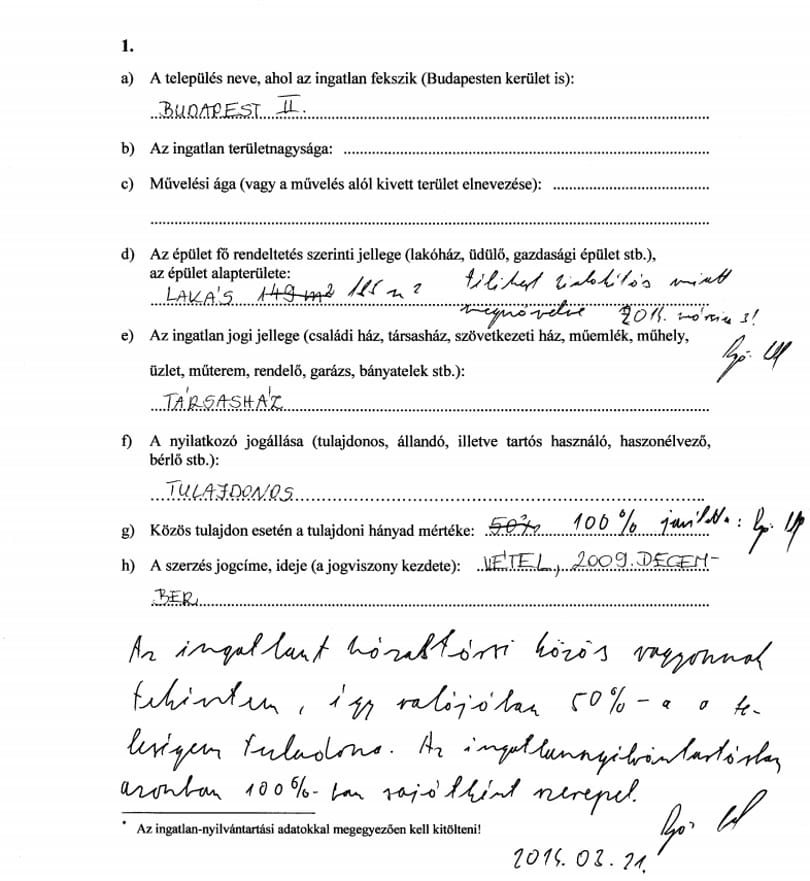 1.
a) A település neve, ahol az ingatlan fekszik (Budapesten kerület is):
BUDAPEST II.
b) Az ingatlan területnagysága:
c) Művelési ága (vagy a művelés alól kivett terület elnevezése):
d) Az épület fő rendeltetés szerinti jellege (lakóház, üdülő, gazdasági épület stb.),
az épület alapterülete:
LAKÁS 149 m2 185 m2 mint
megnövelve március 31
e) Az ingatlan jogi jellege (családi ház, társasház, szövetkezeti ház, műemlék, műhely,
üzlet, műterem, rendelő, garázs, bányatelek stb.):
TÁRSASHÁZ
f) A nyilatkozó jogállása (tulajdonos, állandó, illetve tartós használó, haszonélvező,
bérlő stb.):
TULAJDONOS
g) Közös tulajdon esetén a tulajdoni hányad mértéke: 50% 100%
h) A szerzés jogcíme, ideje (a jogviszony kezdete): VÉTEL, 2009. DECEM-
BER
Az ingatlant házastársi közös vagyonnak
tekintem, így valójában 50%-a a fe-
leségem tulajdona. Az ingatlannyilvántartásban
azonban 100%-ban sajátként szerepel.
* Az ingatlan-nyilvántartási adatokkal megegyezően kell kitölteni!